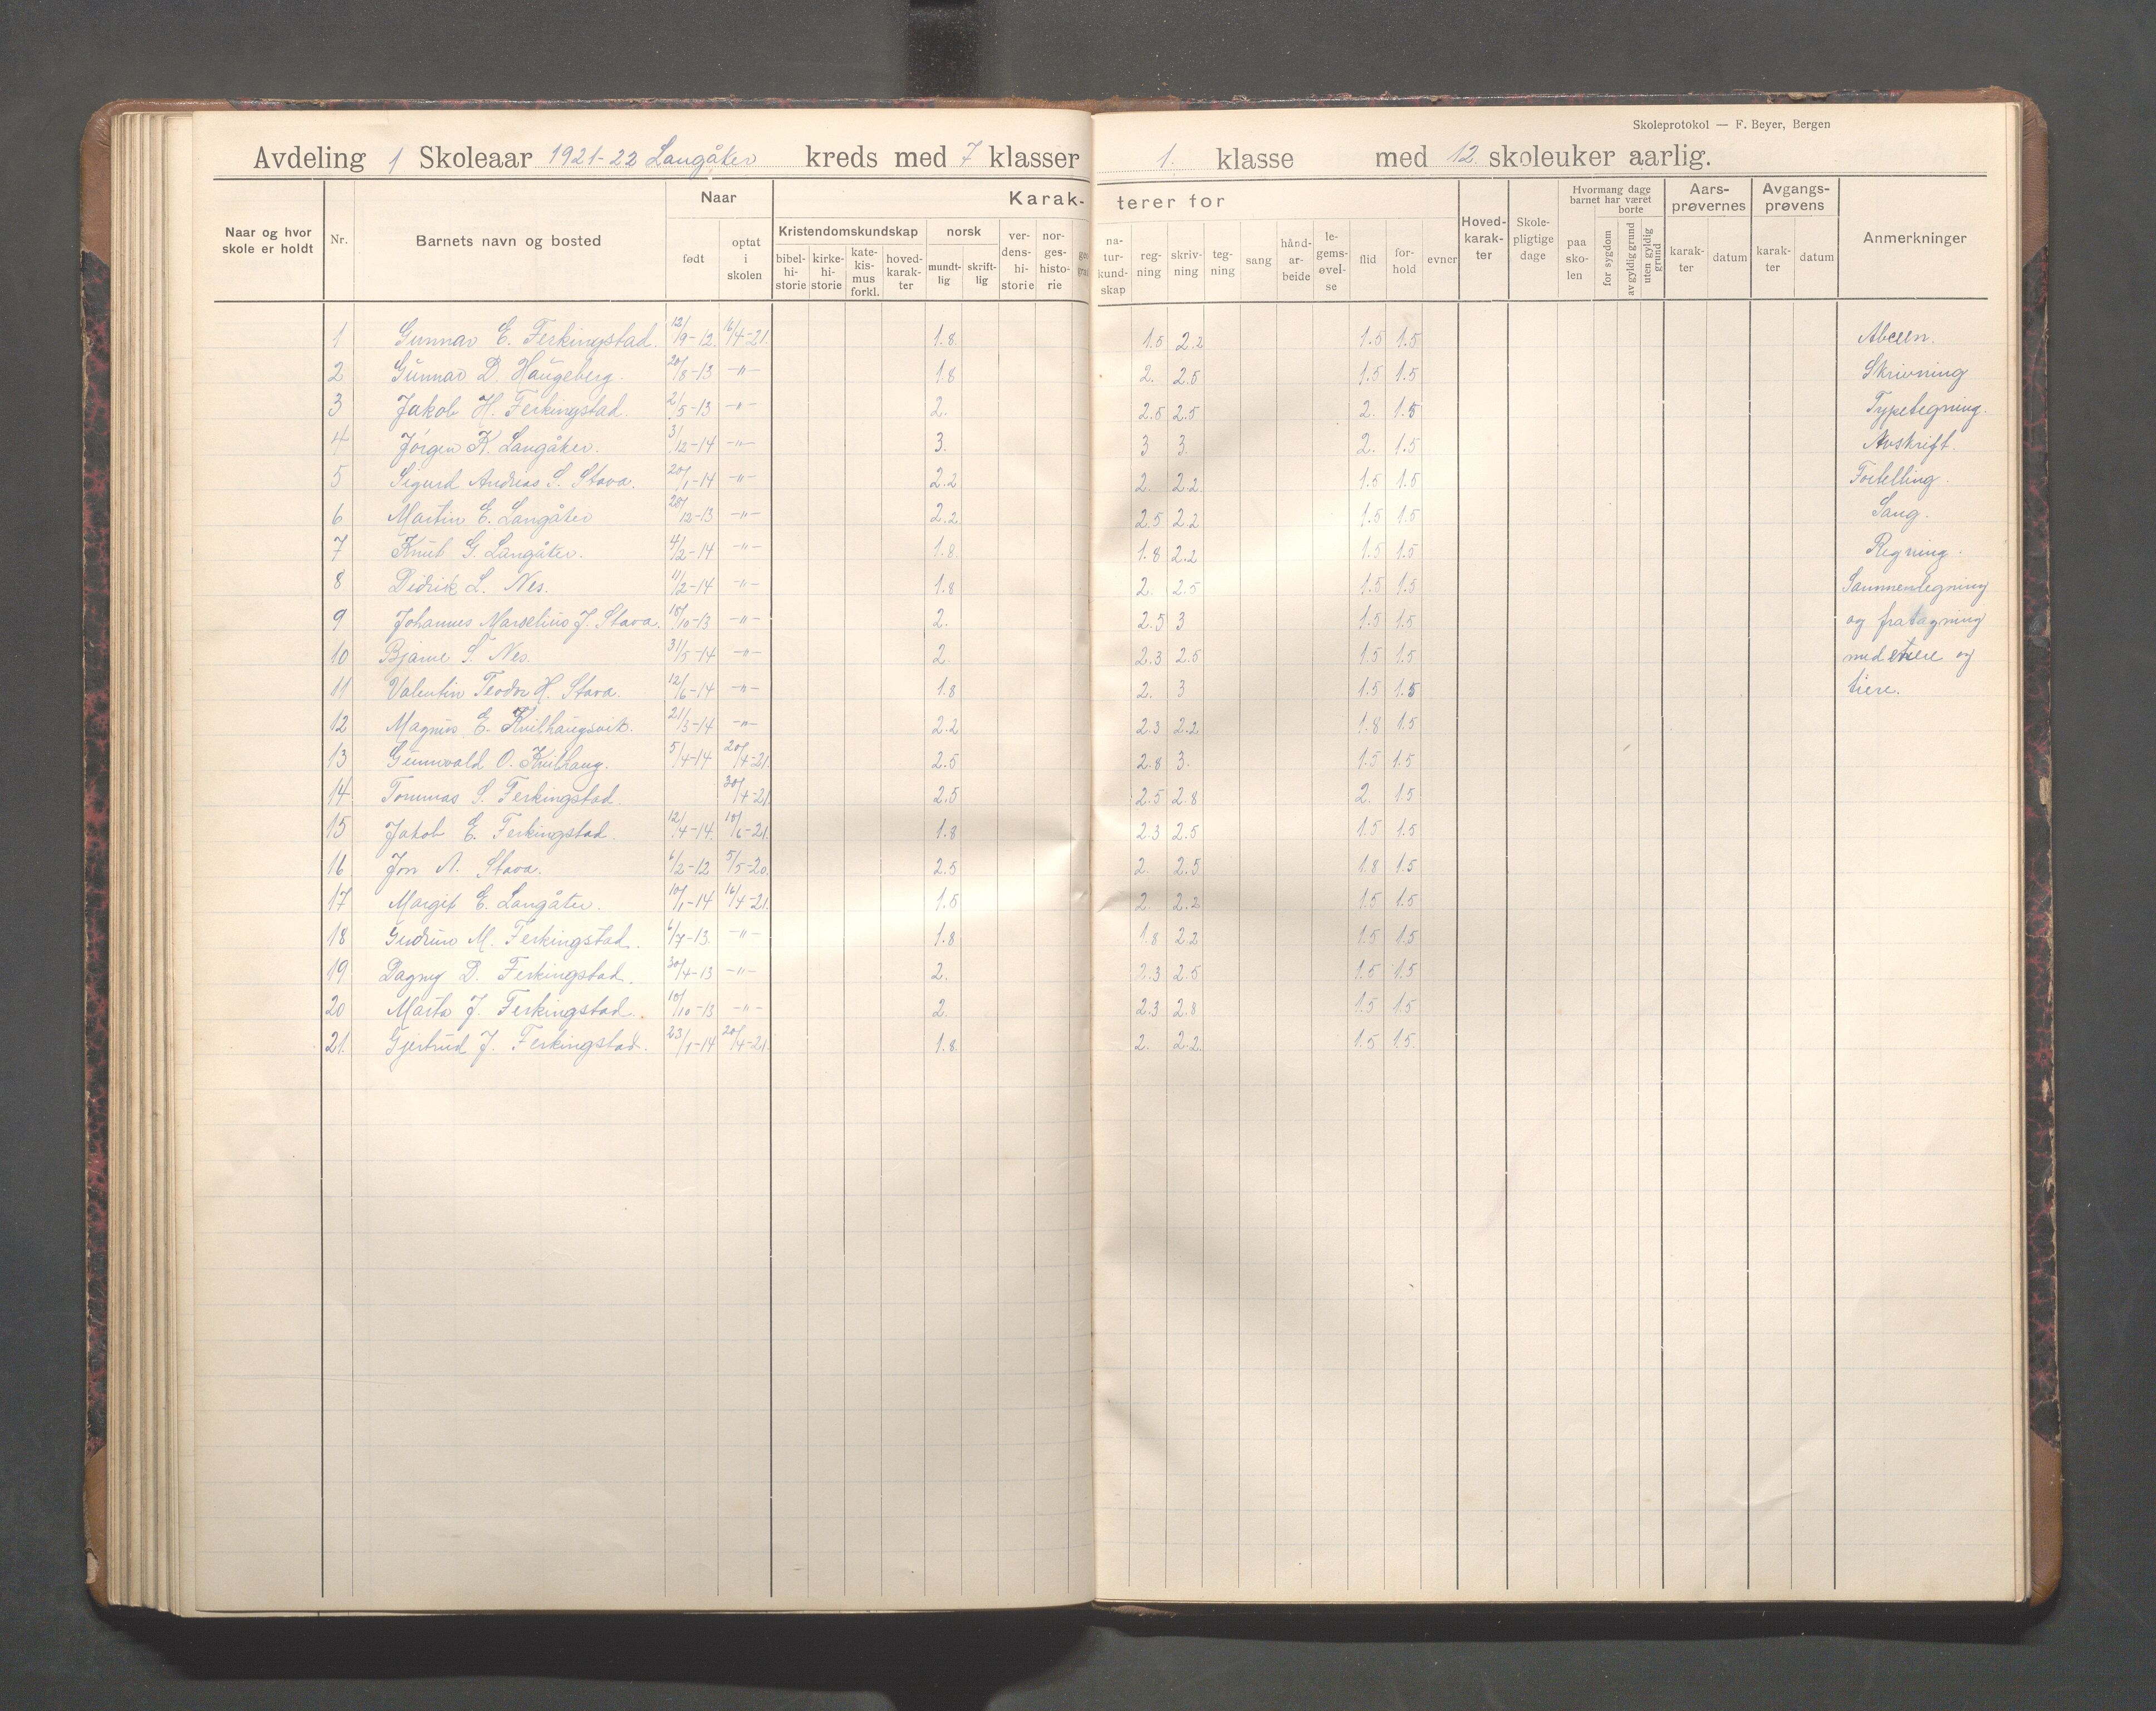 Skoleprotokol — F. Beyer, Bergen
Avdeling 1 Skoleaar 1921-22 Langåker kreds med 7 klasser 1. klasse med 12. skoleuker aarlig.
Naar og hvor skole er holdt | Nr. | Barnets navn og bosted | Naar | født | optat i skolen | Karakterer for | Kristendomskundskap | bibelhistorie | kirkehistorie | katekismus forkl. | hovedkarakter | norsk | mundtlig | skriftlig | verdenshistorie | norgeshistorie | naturkundskap | regning | skrivning | tegning | sang | håndarbeide | legemsøvelse | flid | forhold | evner | Hovedkarakter | Skolepligtige dage | Hvormang dage barnet har været borte | paa skolen | for sygdom | av gyldig grund | uten gyldig grund | Aarsprøvernes | karakter | datum | Avgangsprøvens | karakter | datum | Anmerkninger
1 Gunnar E. Ferkingstad. 12/9-12. 16/4-21. 1.8 1.5 2.2 1.5 1.5 Abceen.
2 Gunnar D. Haugeberg. 20/8-13 -"- 1.8 2. 2.5 1.5 1.5 Skrivning
3 Jakob H. Ferkingstad. 2/5-13 -"- 2. 2.5 2.5 2. 1.5 Typetegning.
4 Jörgen K. Langåker. 3/12-14 -"- 3. 3 3. 2. 1.5 Avskrift.
5 Sigurd Andreas S. Stava. 20/1-14 -"- 2.2 2. 2.2 1.5 1.5 Fortelling.
6 Martin E. Langåker 28/12-13 -"- 2.2 2.5 2.2 1.5 1.5 Sang.
7 Knut G. Langåker. 4/2-14 -"- 1.8 1.8 2.2 1.5 1.5 Regning.
8 Didrik L. Nes. 11/2-14 -"- 1.8 2. 2.5 1.5 1.5 Sammenlegning
9 Johannes Marselius J. Stava. 18/10-13 -"- 2. 2.5 3 1.5 1.5 og fratagning
10 Bjarne S. Nes. 31/5-14 -"- 2. 2.3 2.5 1.5 1.5 med enere og
11 Valentin Teodor H. Stava. 12/6-14 -"- 1.8 2. 3 1.5 1.5 tiere.
12 Magnus E. Kvilhaugsvik. 21/3-14 -"- 2.2 2.3 2.2 1.8 1.5
13 Gunnvald O. Kvilhaug. 5/4-14 20/4-21. 2.5 2.8 3. 1.5 1.5
14 Tommas S. Ferkingstad. 30/4-21. 2.5 2.5 2.8 2. 1.5
15 Jakob E. Ferkingstad. 12/4-14. 10/6-21. 1.8 2.3 2.5 1.5 1.5
16 Jon N. Stava. 6/2-12 5/5-20. 2.5 2. 2.5 1.8 1.5
17 Margit E. Langåker. 10/1-14 16/4-21. 1.5 2. 2.2 1.5 1.5
18 Gudrun M. Ferkingstad. 6/7-13. -"- 1.8 1.8 2.2 1.5 1.5
19 Dagny D. Ferkingstad. 30/4-13 -"- 2. 2.3 2.5 1.5 1.5
20 Marta J. Ferkingstad. 10/10-13 -"- 2. 2.3 2.8 1.5 1.5
21. Gjertrud J. Ferkingstad. 23/1-14 20/4-21. 1.8. 2. 2.2. 1.5 1.5.